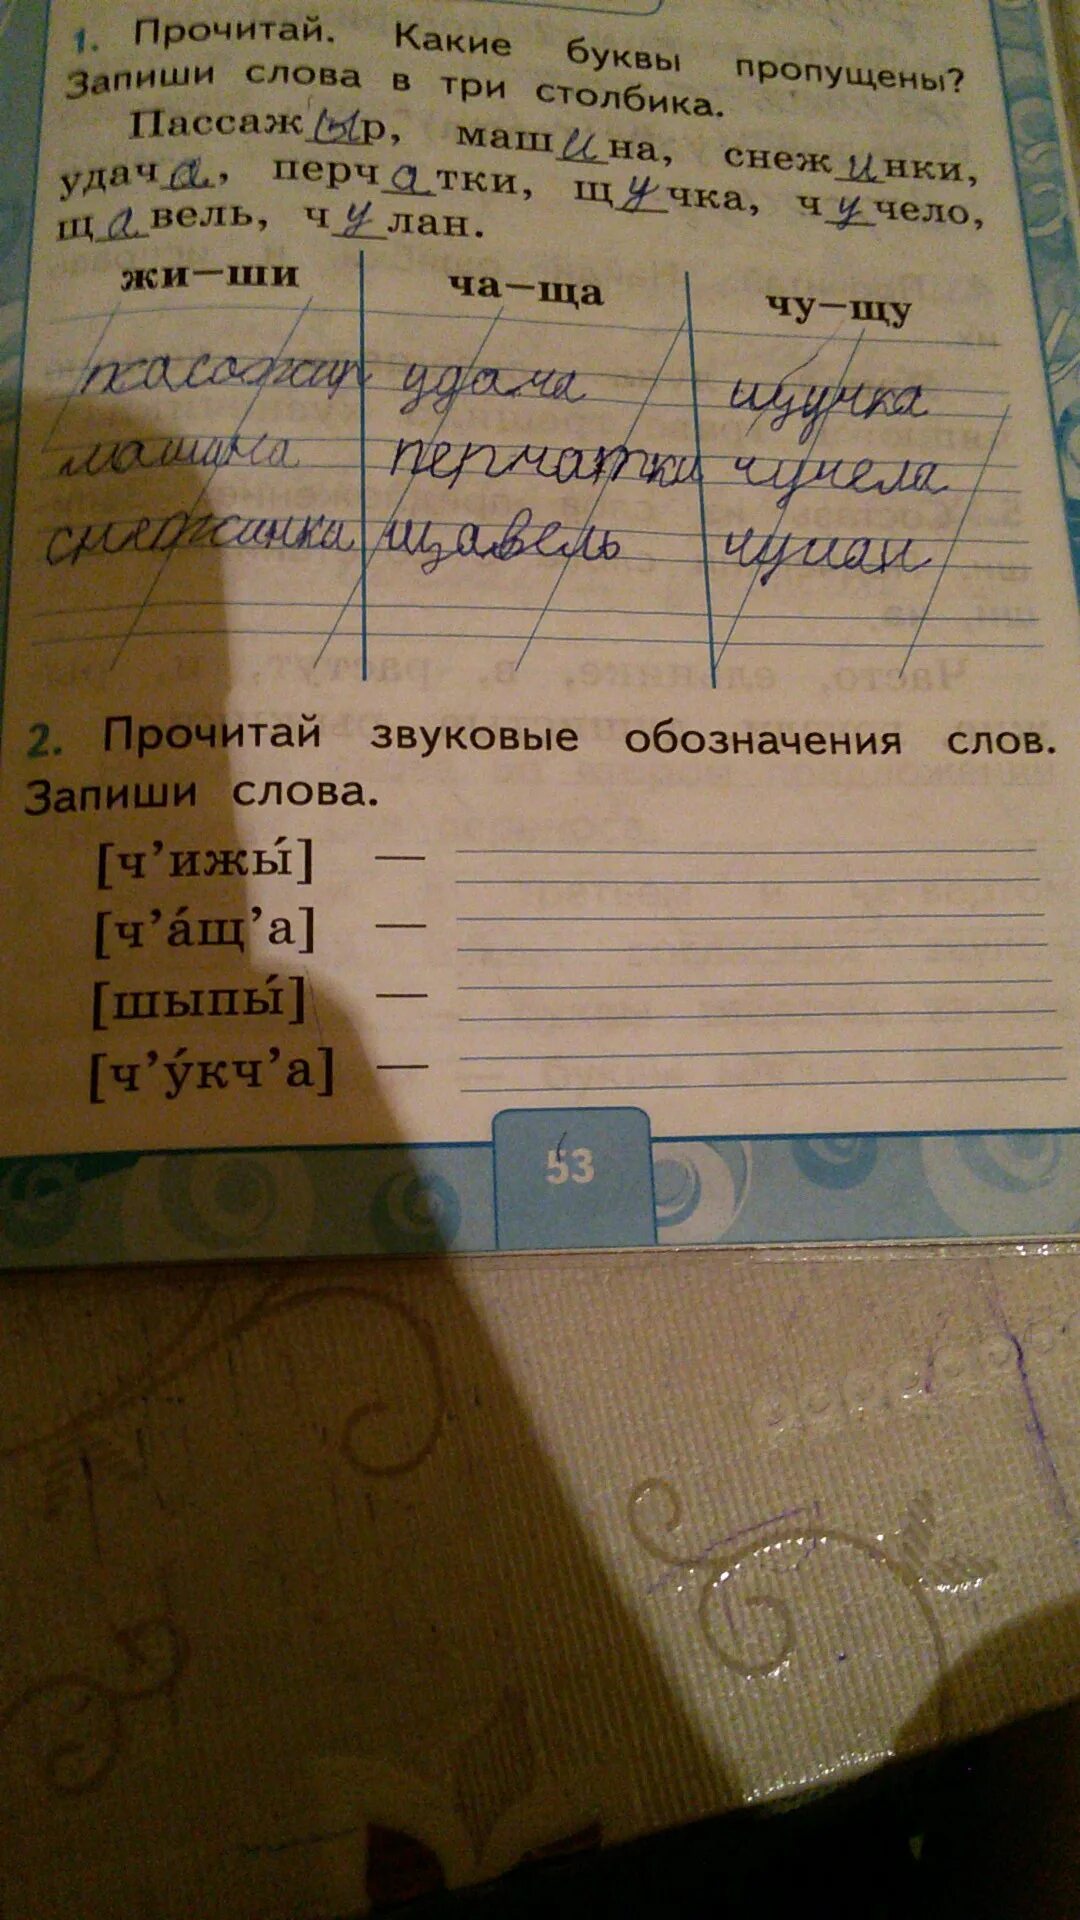 1. Прочитай. Какие буквы пропущены?
Запиши слова в три столбика.
Пассажыр, машина, снежинки,
удача, перчатки, щучка, чучело,
щавель, чулан.
жи–ши ча–ща чу–щу
пасажир удача щучка
машина перчатки чучела
снежинка щавель чулан
2. Прочитай звуковые обозначения слов.
Запиши слова.
[ч’ижы́] —
[ч’а́щ’а] —
[шыпы́] —
[ч’у́кч’а] —
53